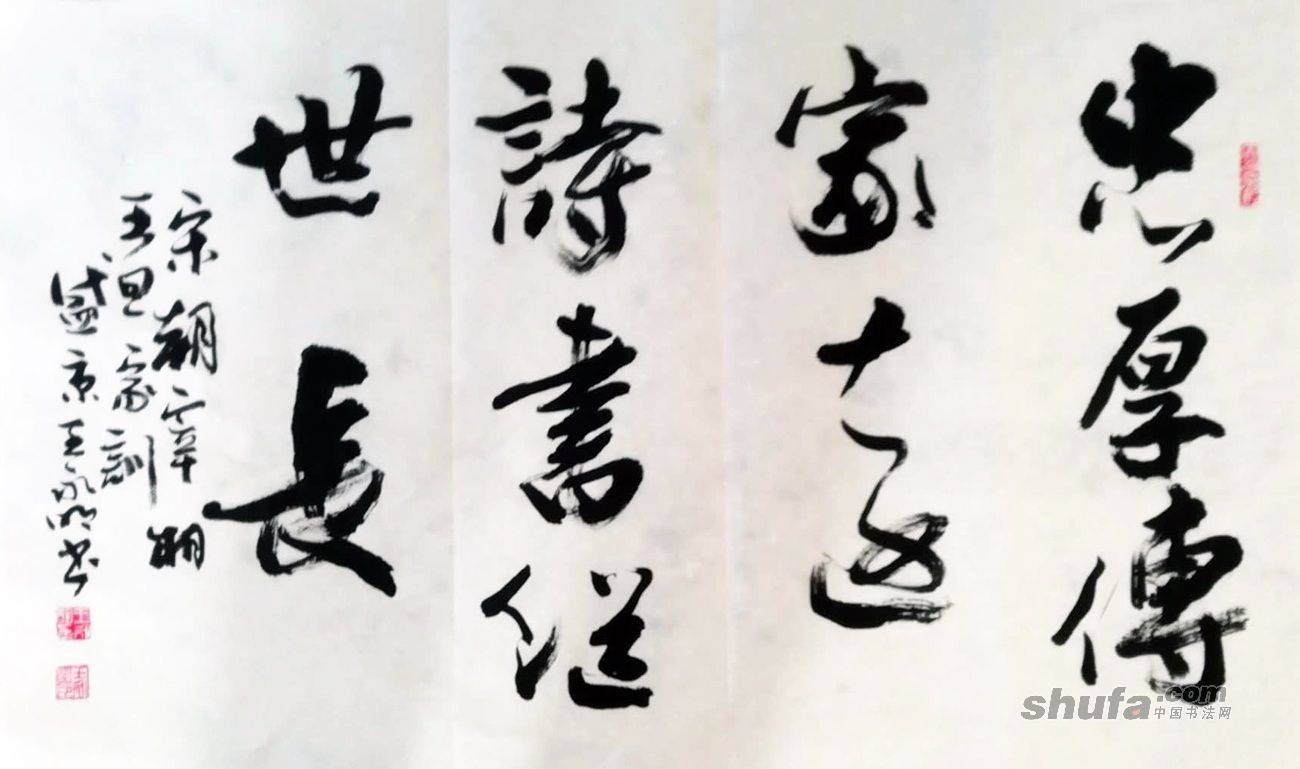 忠厚傳
家遠
詩書繼
世長
宋朝宰相
王旦家訓
盛京王永明书
shufa.com
中国书法网